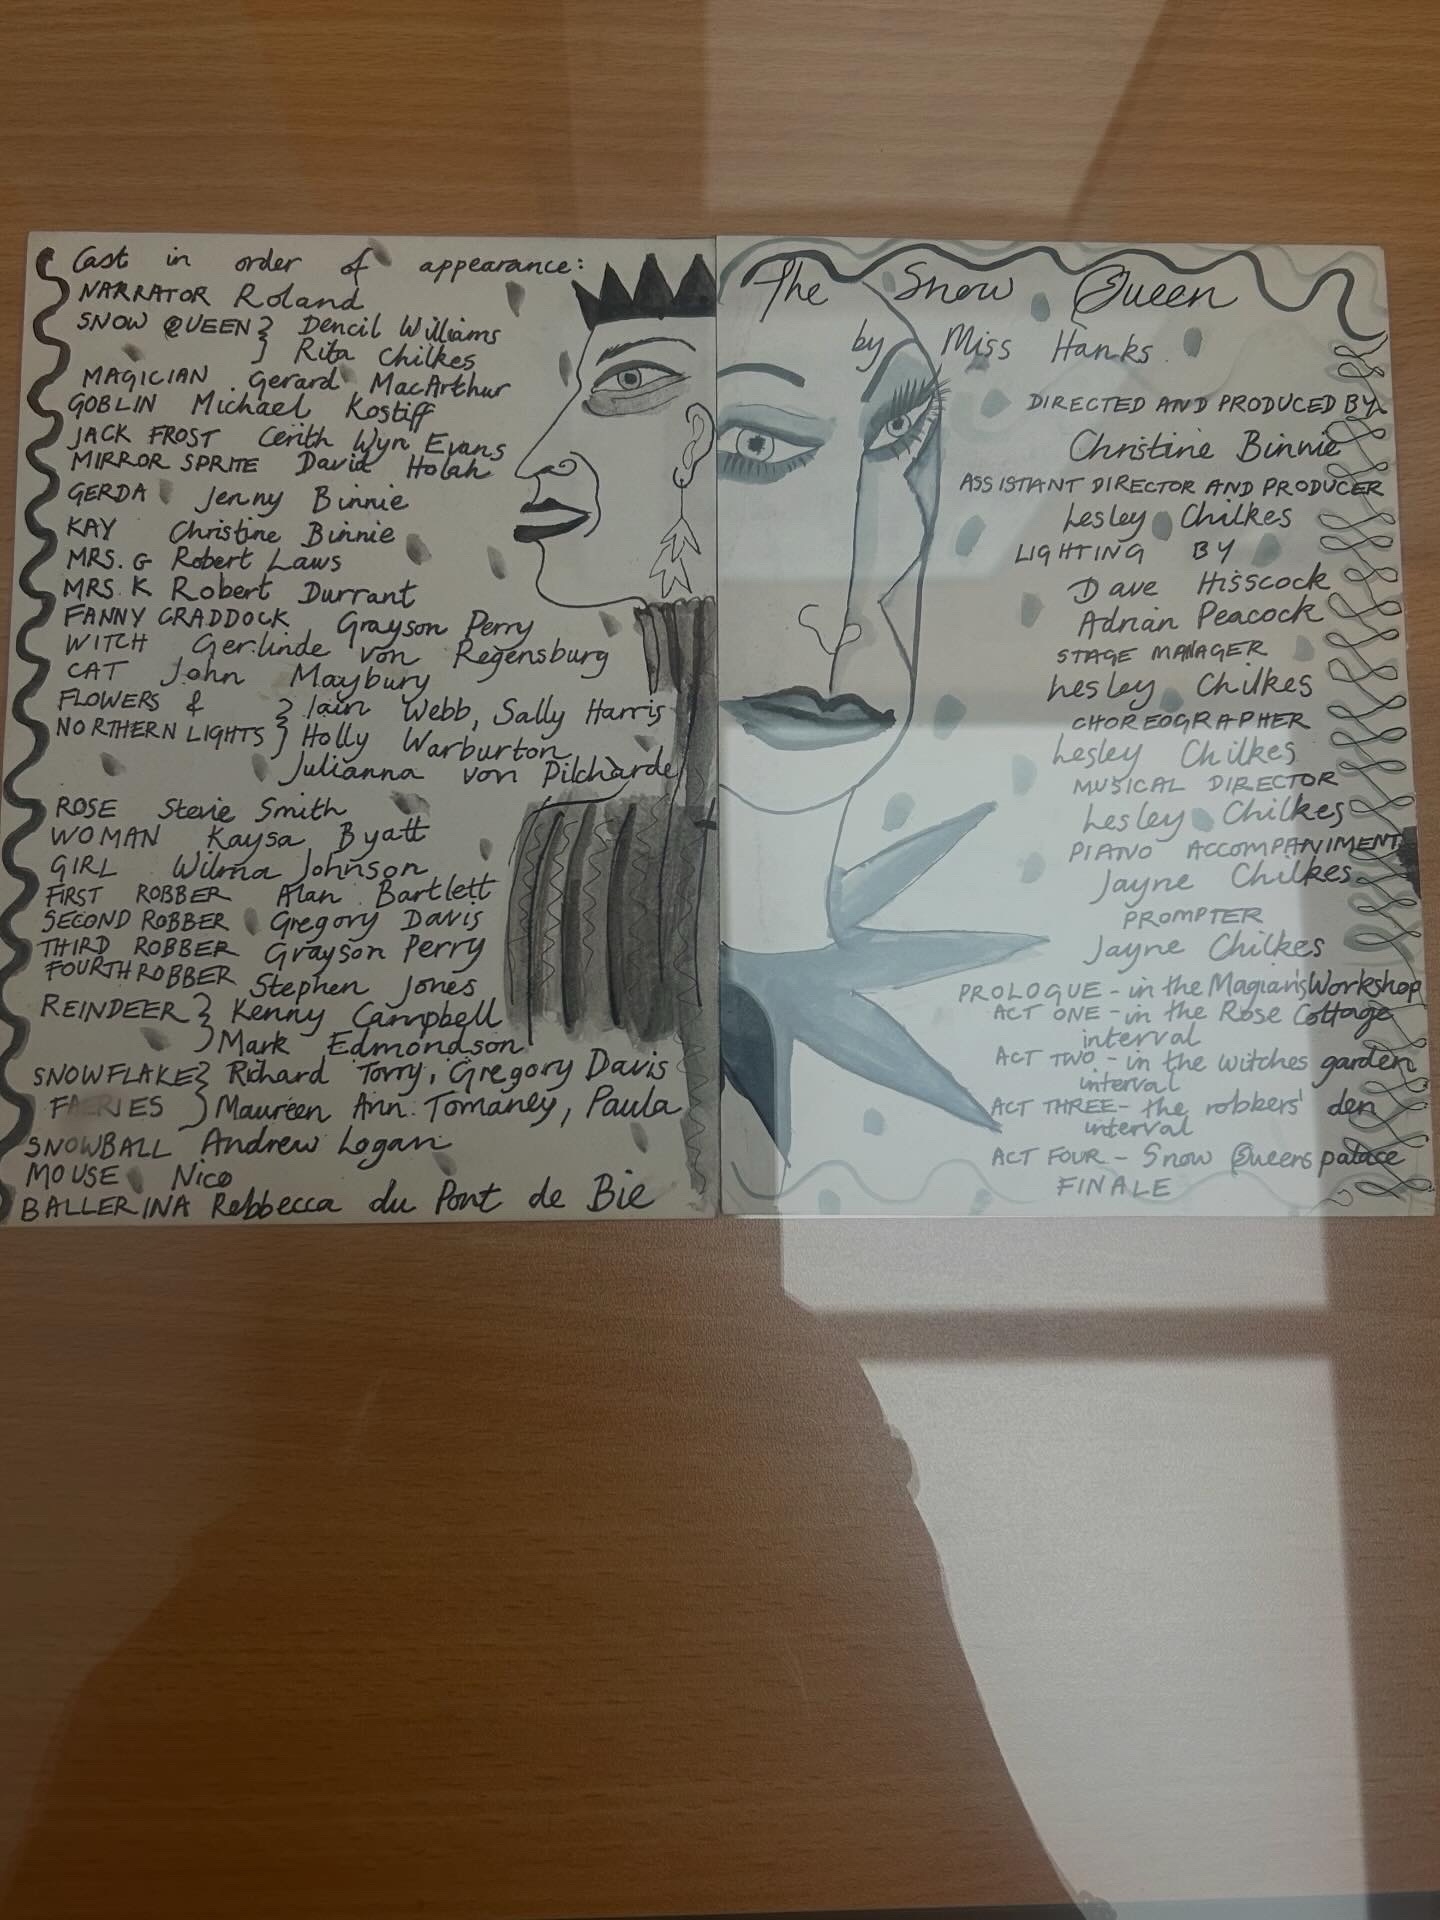 Cast in order of appearance:
NARRATOR Roland
SNOW QUEEN } Dencil Williams
Rita Chilkes
MAGICIAN Gerard MacArthur
GOBLIN Michael Kostiff
JACK FROST Cerith Wyn Evans
MIRROR SPRITE David Holah
GERDA Jenny Binnie
KAY Christine Binnie
MRS. G Robert Laws
MRS. K Robert Durrant
FANNY CRADDOCK Grayson Perry
WITCH Gerlinde von Regensburg
CAT John Maybury
FLOWERS & } Iain Webb, Sally Harris
NORTHERN LIGHTS } Holly Warburton
Julianna von Pilcharde
ROSE Stevie Smith
WOMAN Kaysa Byatt
GIRL Wilma Johnson
FIRST ROBBER Alan Bartlett
SECOND ROBBER Gregory Davis
THIRD ROBBER Grayson Perry
FOURTH ROBBER Stephen Jones
REINDEER } Kenny Campbell
Mark Edmondson
SNOWFLAKE } Richard Torry, Gregory Davis
FAERIES } Maureen Ann Tomaney, Paula
SNOWBALL Andrew Logan
MOUSE Nico
BALLERINA Rebbecca du Pont de Bie
The Snow Queen
by Miss Hanks.
DIRECTED AND PRODUCED BY
Christine Binnie
ASSISTANT DIRECTOR AND PRODUCER
Lesley Chilkes
LIGHTING BY
Dave Hisscock
Adrian Peacock
STAGE MANAGER
Lesley Chilkes
CHOREOGRAPHER
Lesley Chilkes
MUSICAL DIRECTOR
Lesley Chilkes
PIANO ACCOMPANIMENT
Jayne Chilkes.
PROMPTER
Jayne Chilkes
PROLOGUE - in the Magian's Workshop
ACT ONE - in the Rose Cottage
interval
ACT TWO - in the witches garden
interval
ACT THREE - the robbers' den
interval
ACT FOUR - Snow Queens palace
FINALE